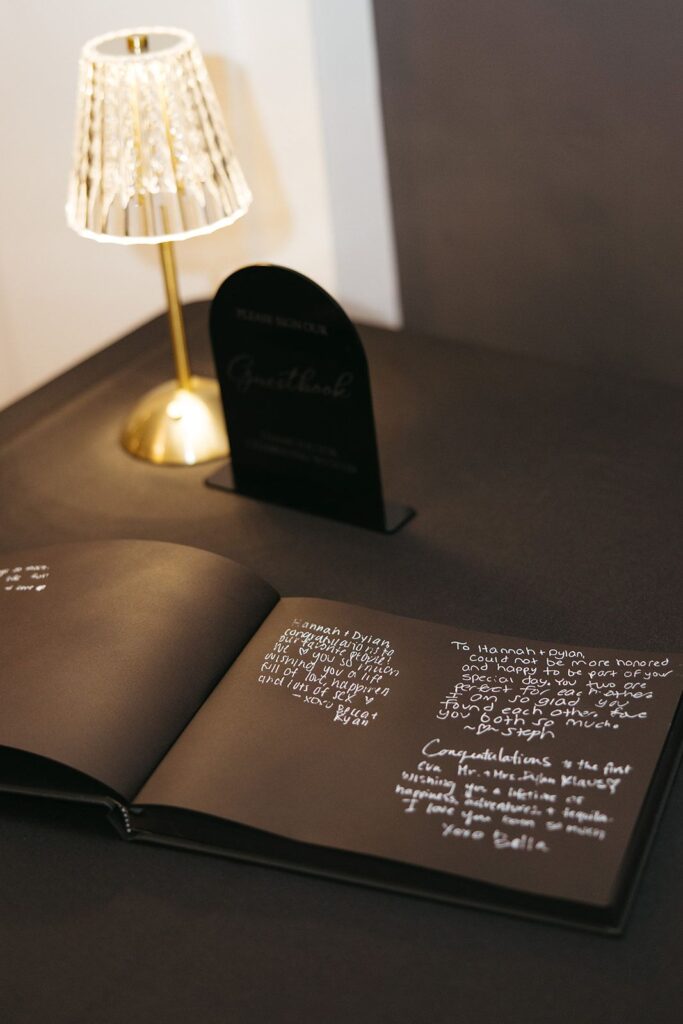 PLEASE SIGN OUR
Guestbook
Hannah + Dylan
congratulations to
our favorite people!
We ♡ you so much
Wishing you a life
full of love, happiness
and lots of sex ♡
- xoxo Bella +
Ryan
To Hannah + Dylan,
could not be more honored
and happy to be part of your
special day. You two are
perfect for each other.
I am so glad you
found each other. Love
you both so much.
~♡~ Steph
Congratulations to the first
eva Mr. + Mrs. Dylan Klaus ♡
Wishing you a lifetime of
happiness, adventures + tequila.
I love you both so much
xoxo Bella